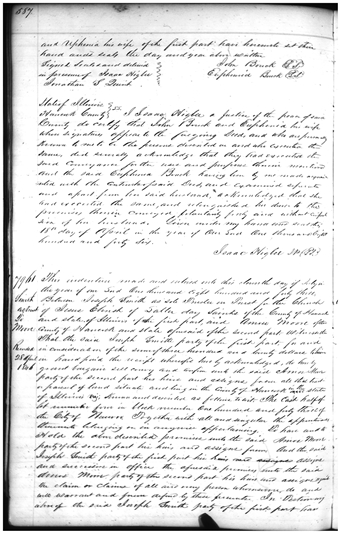 587
and Euphemia his wife of the first part have hereunto set their
hands and seals the day and year above written
Signed Sealed and delivered John Buck
in presence of Isaac Higbee Euphemia Buck
Jonathan
State of Illinois
Hancock County I Isaac Higbee a justice of the peace of said
County do certify that John Buck and Euphemia his wife
whose signature appears to the foregoing Deed and who are personally
known to me to be the persons described in and who executed the
same, did severally acknowledge that they had executed the
said conveyance for the uses and purposes therein mentioned
And the said Euphemia Buck having been by me made acquain
ted with the contents of said Deed and examined separate
and apart from her said husband acknowledged that she
had executed the same, and relinquished her dower to the
premises therein conveyed, voluntarily freely and without compul
sion of her husband Given under my hand and seal this
day of April in the year of our Lord One thousand eight
hundred and forty Six.
Isaac Higbee
This indenture made and entered into this eleventh day of July in
the year of our Lord One thousand eight hundred and forty three
Smith Between Joseph Smith as sole Trustee in Trust for the Church
of Jesus Christ of Latter day Saints of the County of Hancock
to and State of Illinois of the first part and Moore of the
Moore County of Hancock and State aforesaid of the second part Witnesseth
That the said Joseph Smith party of the first part for and
in consideration of the sum of three hundred and dollars to him
28 April in hand paid the receipt whereof is hereby acknowledged do hereby
1846 grant bargain sell convey and confirm unto the said Moore
party of the second part his heirs and assigns forever all that
of land situate and being in the County of Hancock and State
of Illinois and described as follows to wit The East half of
lot number four in Block number one hundred and forty three of
the City of Nauvoo Together with all and singular the appurtenances
thereunto belonging or in anywise appertaining To have and to
Hold the above described premises unto the said Moore
party of the second part his heirs and assigns forever And the said
Joseph Smith party of the first part his
and successors in office the aforesaid premises unto the said
Moore party of the second part his heirs and assigns against
the claim or claims of all and every person whomsoever do and
will warrant and forever defend by these presents In testimony
whereof the said Joseph Smith party of the first part has